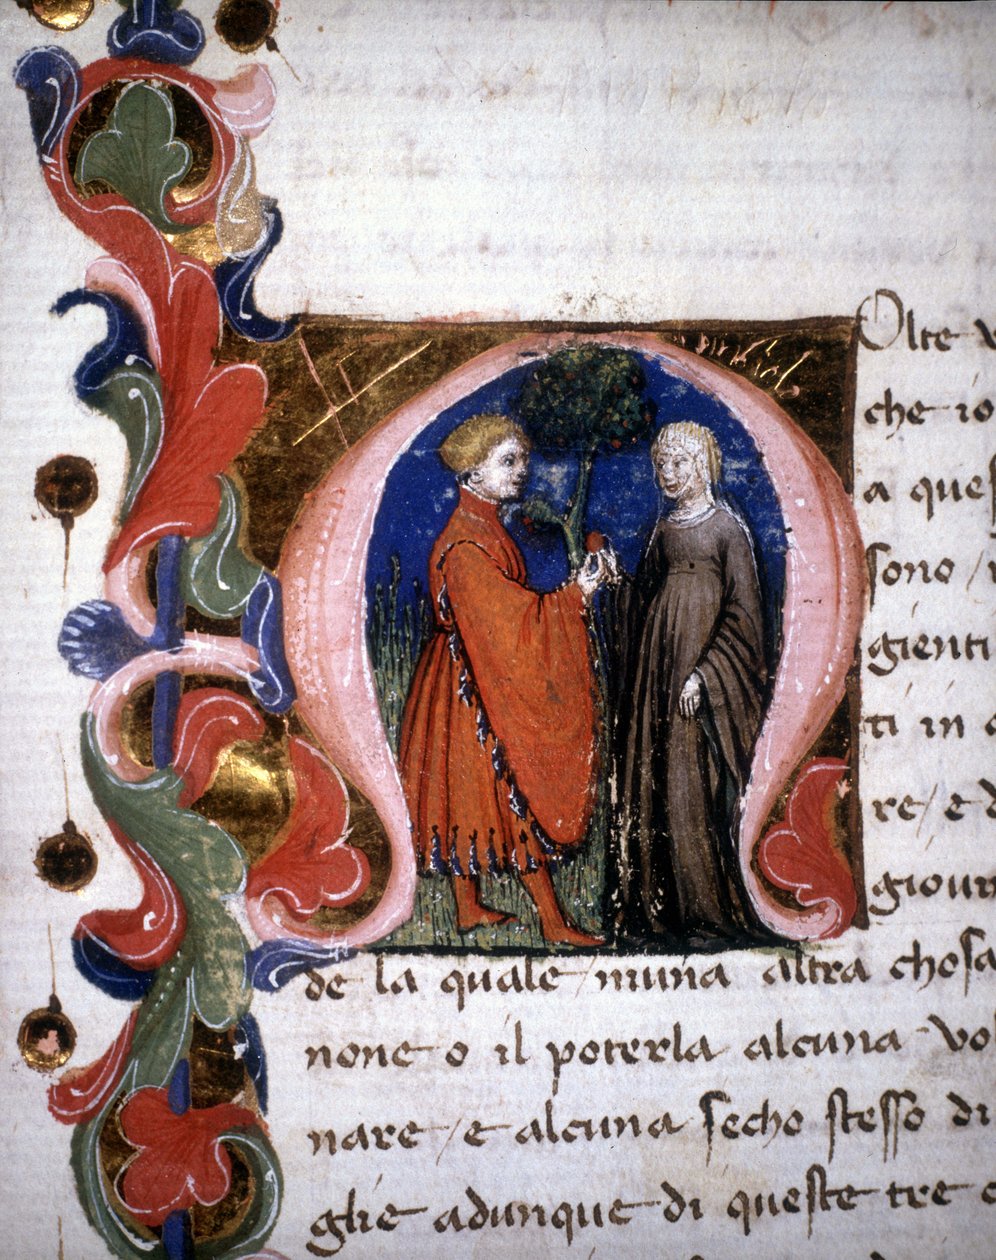 MOlte v
che io
a ques
sono /
gienti
ti in a
re / e d
giour
de la quale / niuna altra chosa
none o il poterla alcuna vol
nare / e alcuna secho stesso di
glie adunque di queste tre